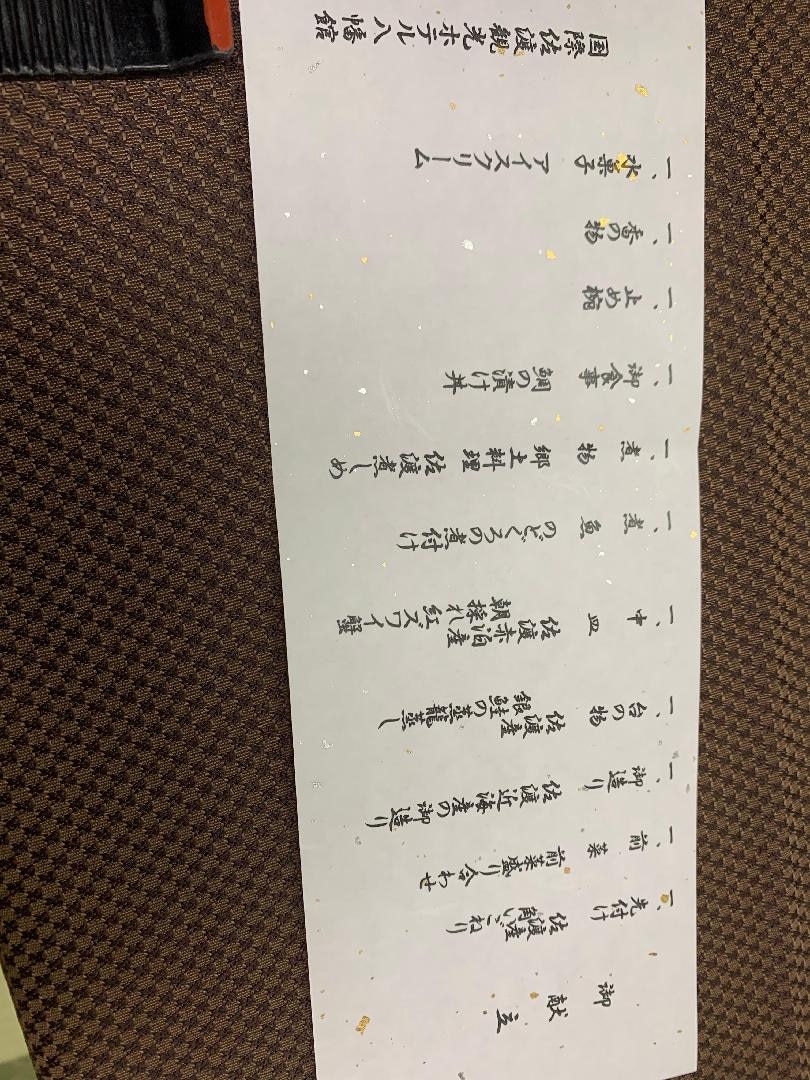 御献立
一、先付け 佐渡産角いごねり
一、前菜 前菜盛り合わせ
一、御造り 佐渡近海産の御造り
一、台の物 佐渡産銀鮭の蒸籠蒸し
一、中皿 佐渡赤泊産
朝採れ紅ズワイ蟹
一、煮魚 のどぐろの煮付け
一、煮物 郷土料理 佐渡煮しめ
一、御食事 鯛の漬け丼
一、止め椀
一、香の物
一、水菓子 アイスクリーム
国際佐渡観光ホテル八幡館